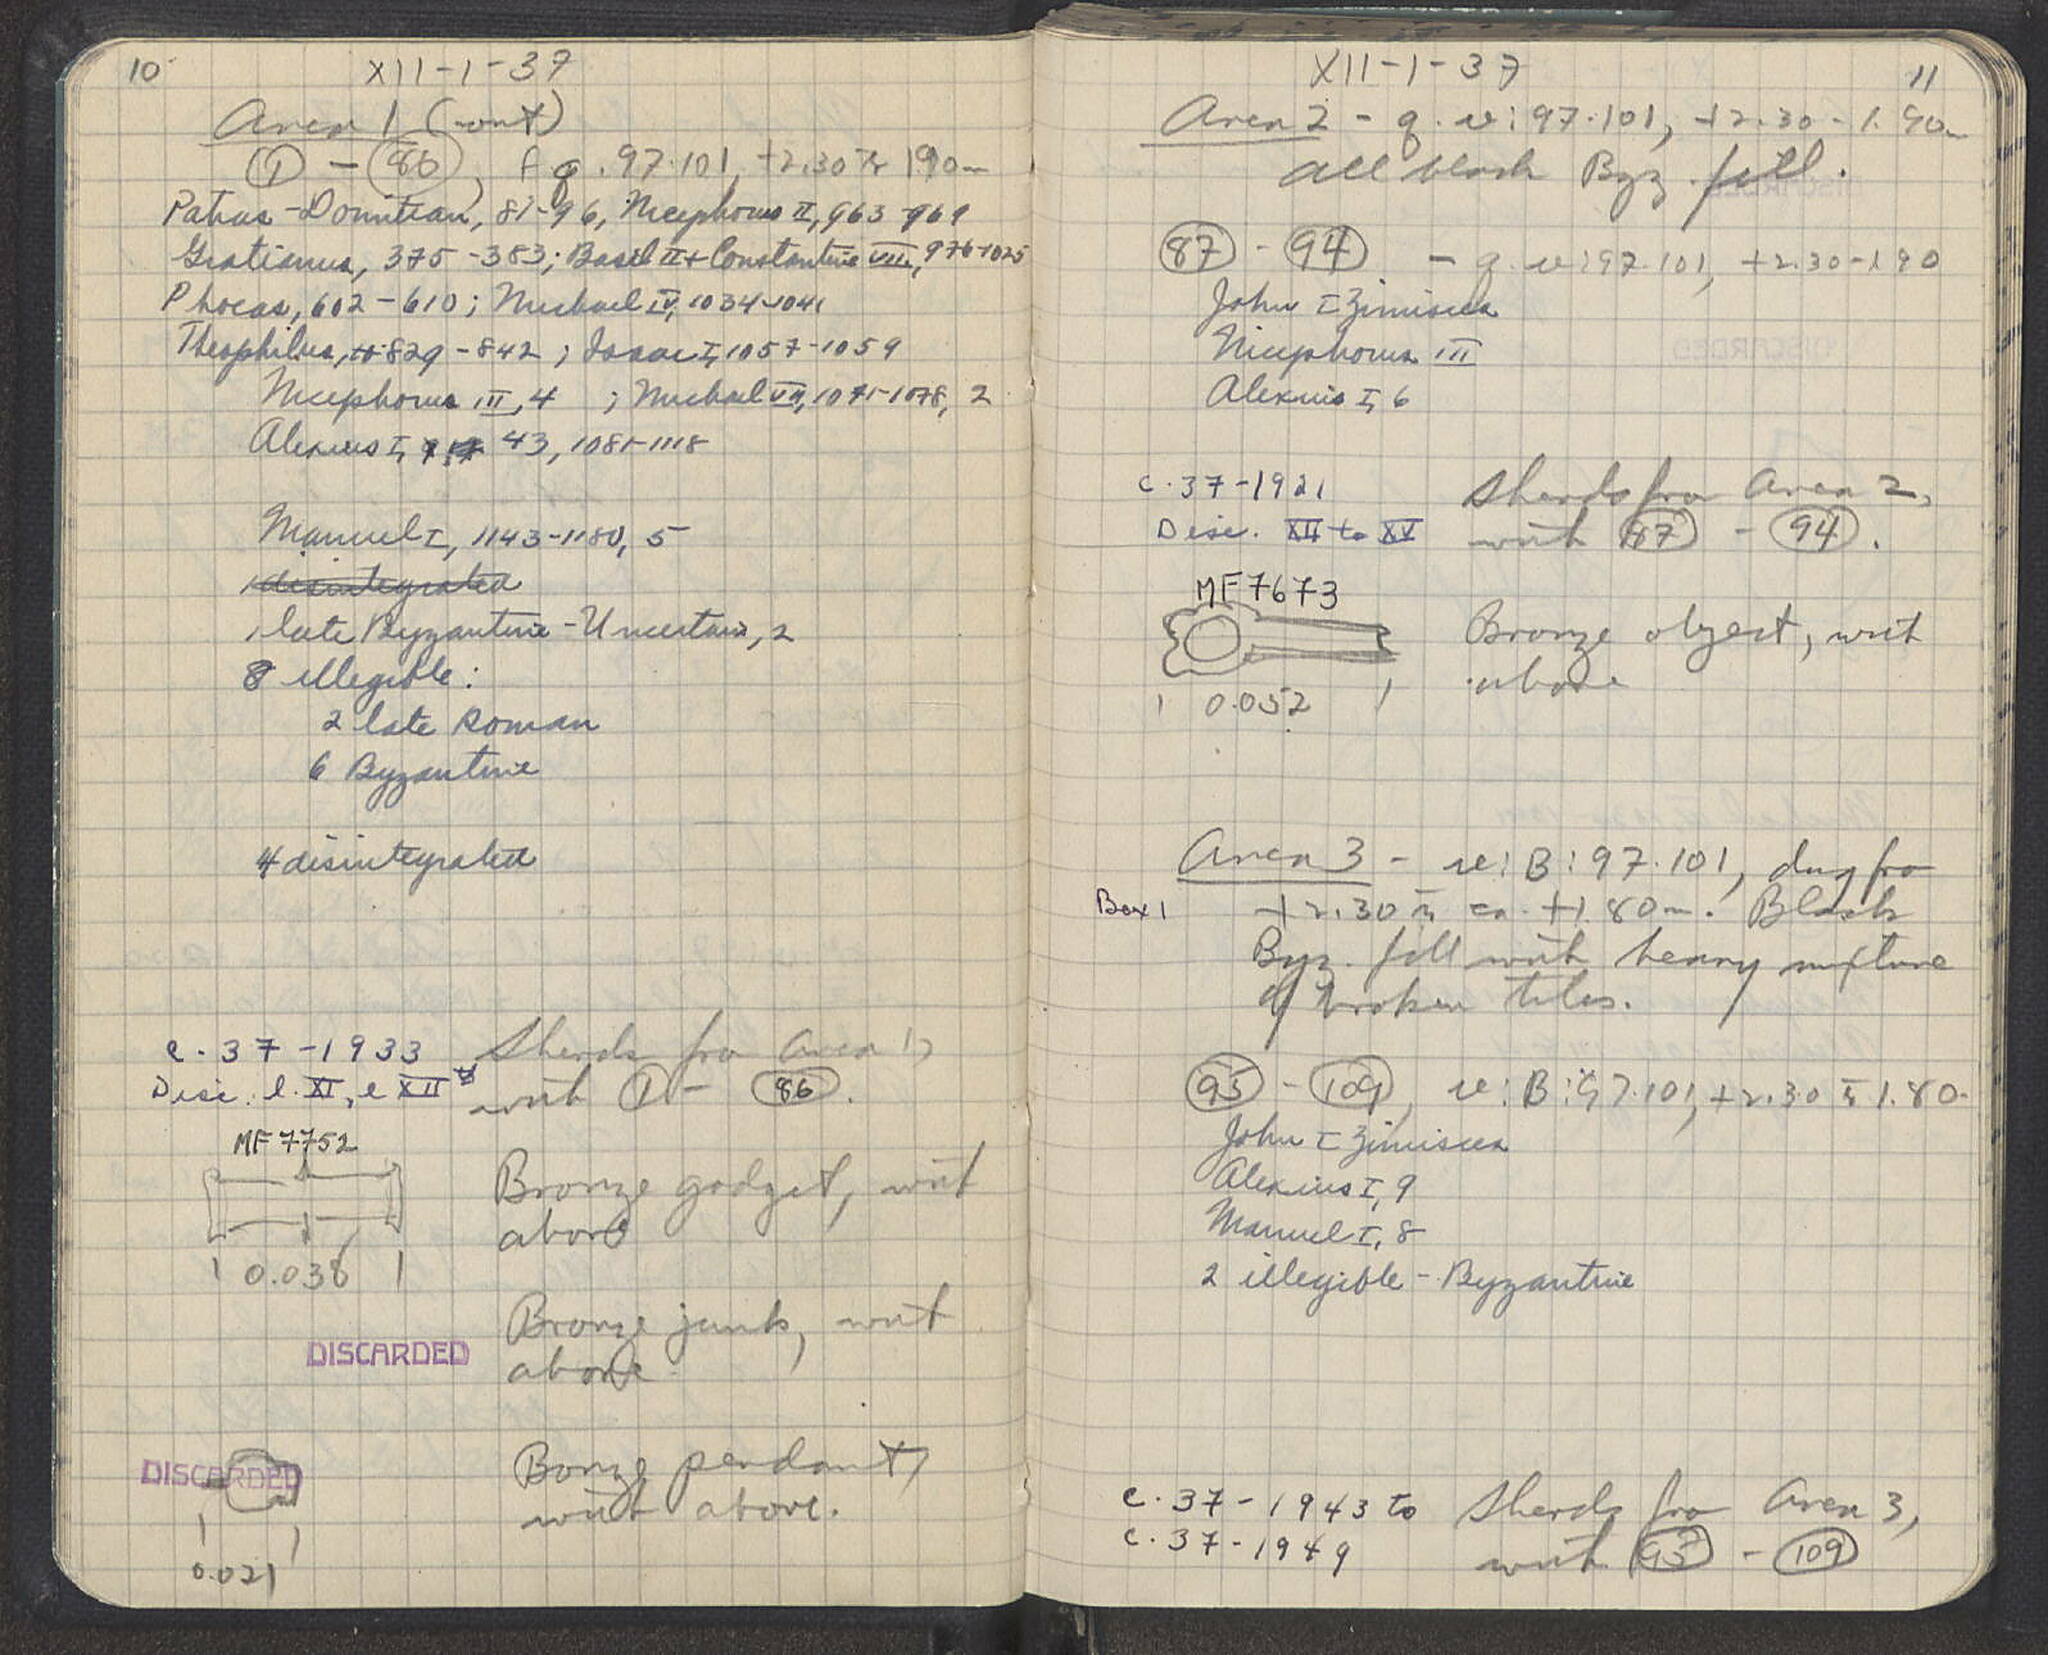 10
XII-1-37
Area 1 (cont)
1 - 86, f q. 97.101, +2.30 to 1.90m
Patras-Domitian, 81-96, Nicephorus II, 963-969
Gratianus, 375-383; Basil II + Constantine VIII, 976-1025
Phocas, 602-610; Michael IV, 1034-1041
Theophilus, 829-842; Isaac I, 1057-1059
Nicephorus III, 4 ; Michael VII, 1071-1078, 2
Alexius I, 43, 1081-1118
Manuel I, 1143-1180, 5
disintegrated
late Byzantine - Uncertain, 2
8 illegible:
2 late Roman
6 Byzantine
4 disintegrated
C.37-1933
Disc. l. XI, e XII
Sherds from Area 1,
with 1 - 86.
MF 7752
0.038
Bronze gadget, with
above
DISCARDED
Bronze junk, with
above.
DISCARDED
0.021
Bonze pendant,
with above.
XII-1-37
11
Area 2 - q. w: 97.101, +2.30 - 1.90m
all black Byz. fill.
87 - 94 - q. w: 97.101, +2.30-1.90
John I Zimisces
Nicephorus III
Alexius I, 6
C.37-1921
Disc. XII to XV
Sherds from Area 2,
with 87 - 94.
MF 7673
0.052
Bronze object, with
above
Area 3 - w: B: 97.101, dug from
Box 1
+2.30 to ca. +1.80m. Black
Byz. fill with heavy mixture
of broken tiles.
95 - 109, w: B: 97.101, +2.30 to 1.80
John I Zimisces
Alexius I, 9
Manuel I, 8
2 illegible - Byzantine
C.37-1943 to
C.37-1949
Sherds from Area 3,
with 95 - 109